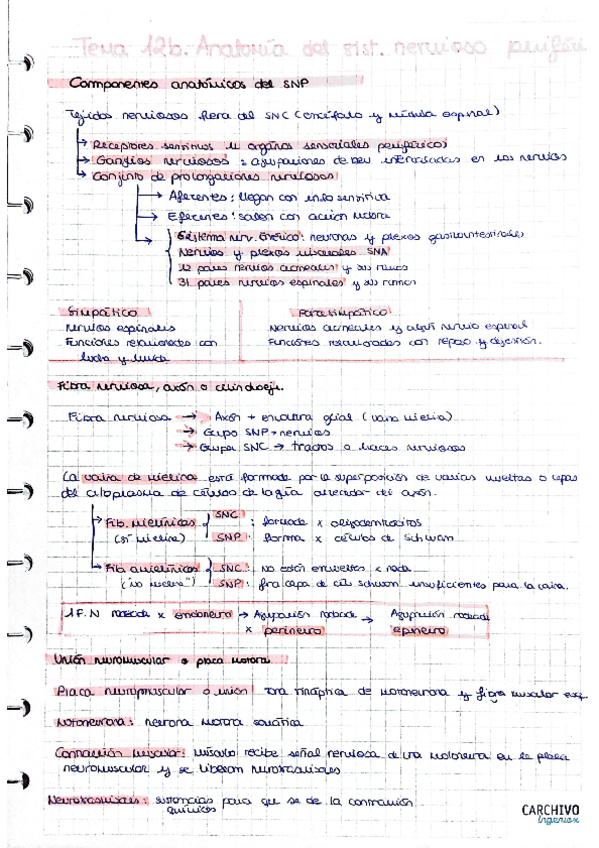 Tema 12b. Anatomía del sist. nervioso periféri
Componentes anatómicos del SNP
Tejidos nerviosos fuera del SNC (encéfalo y médula espinal)
Receptores sensitivos u organos sensoriales periféricos
Ganglios nerviosos : agrupaciones de neu intercaladas en los nervios
Conjunto de prolongaciones nerviosas
Aferentes: llegan con info sensitiva
Eferentes: salen con acción motora
Sistema nerv. Entérico: neuronas y plexos gastrointestinales
Nervios y plexos viscerales SNA
12 pares nervios craneales y sus ramos
31 pares nervios espinales y sus ramos
Simpático
Nervios espinales
Funciones relacionadas con
lucha y huida
Parasimpático
Nervios craneales y algún nervio espinal
Funciones relacionadas con reposo y digestión.
Fibra nerviosa, axón o cilindroeje.
Fibra nerviosa → Axón + envoltura glial (vaina mielina)
→ Grupo SNP → nervios
→ Grupo SNC → tractos o haces nerviosos
La vaina de mielina está formada por la superposición de varias vueltas o capas
del citoplasma de células de la glía alrededor del axón.
Fib. mielínicas
(sí mielina)
SNC : formada x oligodendrocitos
SNP : forma x células de Schwan
Fib amielínicas
("no mielina")
SNC : No están envueltas x nada
SNP : fina capa de cls schwan insuficientes para la vaina.
1 F.N rodeada x endoneuro → Agrupación rodeada → Agrupación rodeada
x perineuro epineuro
Unión neuromuscular o placa motora
Placa neuromuscular o unión: zona sináptica de motoneurona y fibra muscular esq.
Motoneurona: neurona motora somática
Contracción muscular: músculo recibe señal nerviosa de una motoneurona en la placa
neuromuscular y se liberan neurotransmisores
Neurotransmisores: sustancias para que se de la contracción
químicas
CARCHIVO
Ingeniox